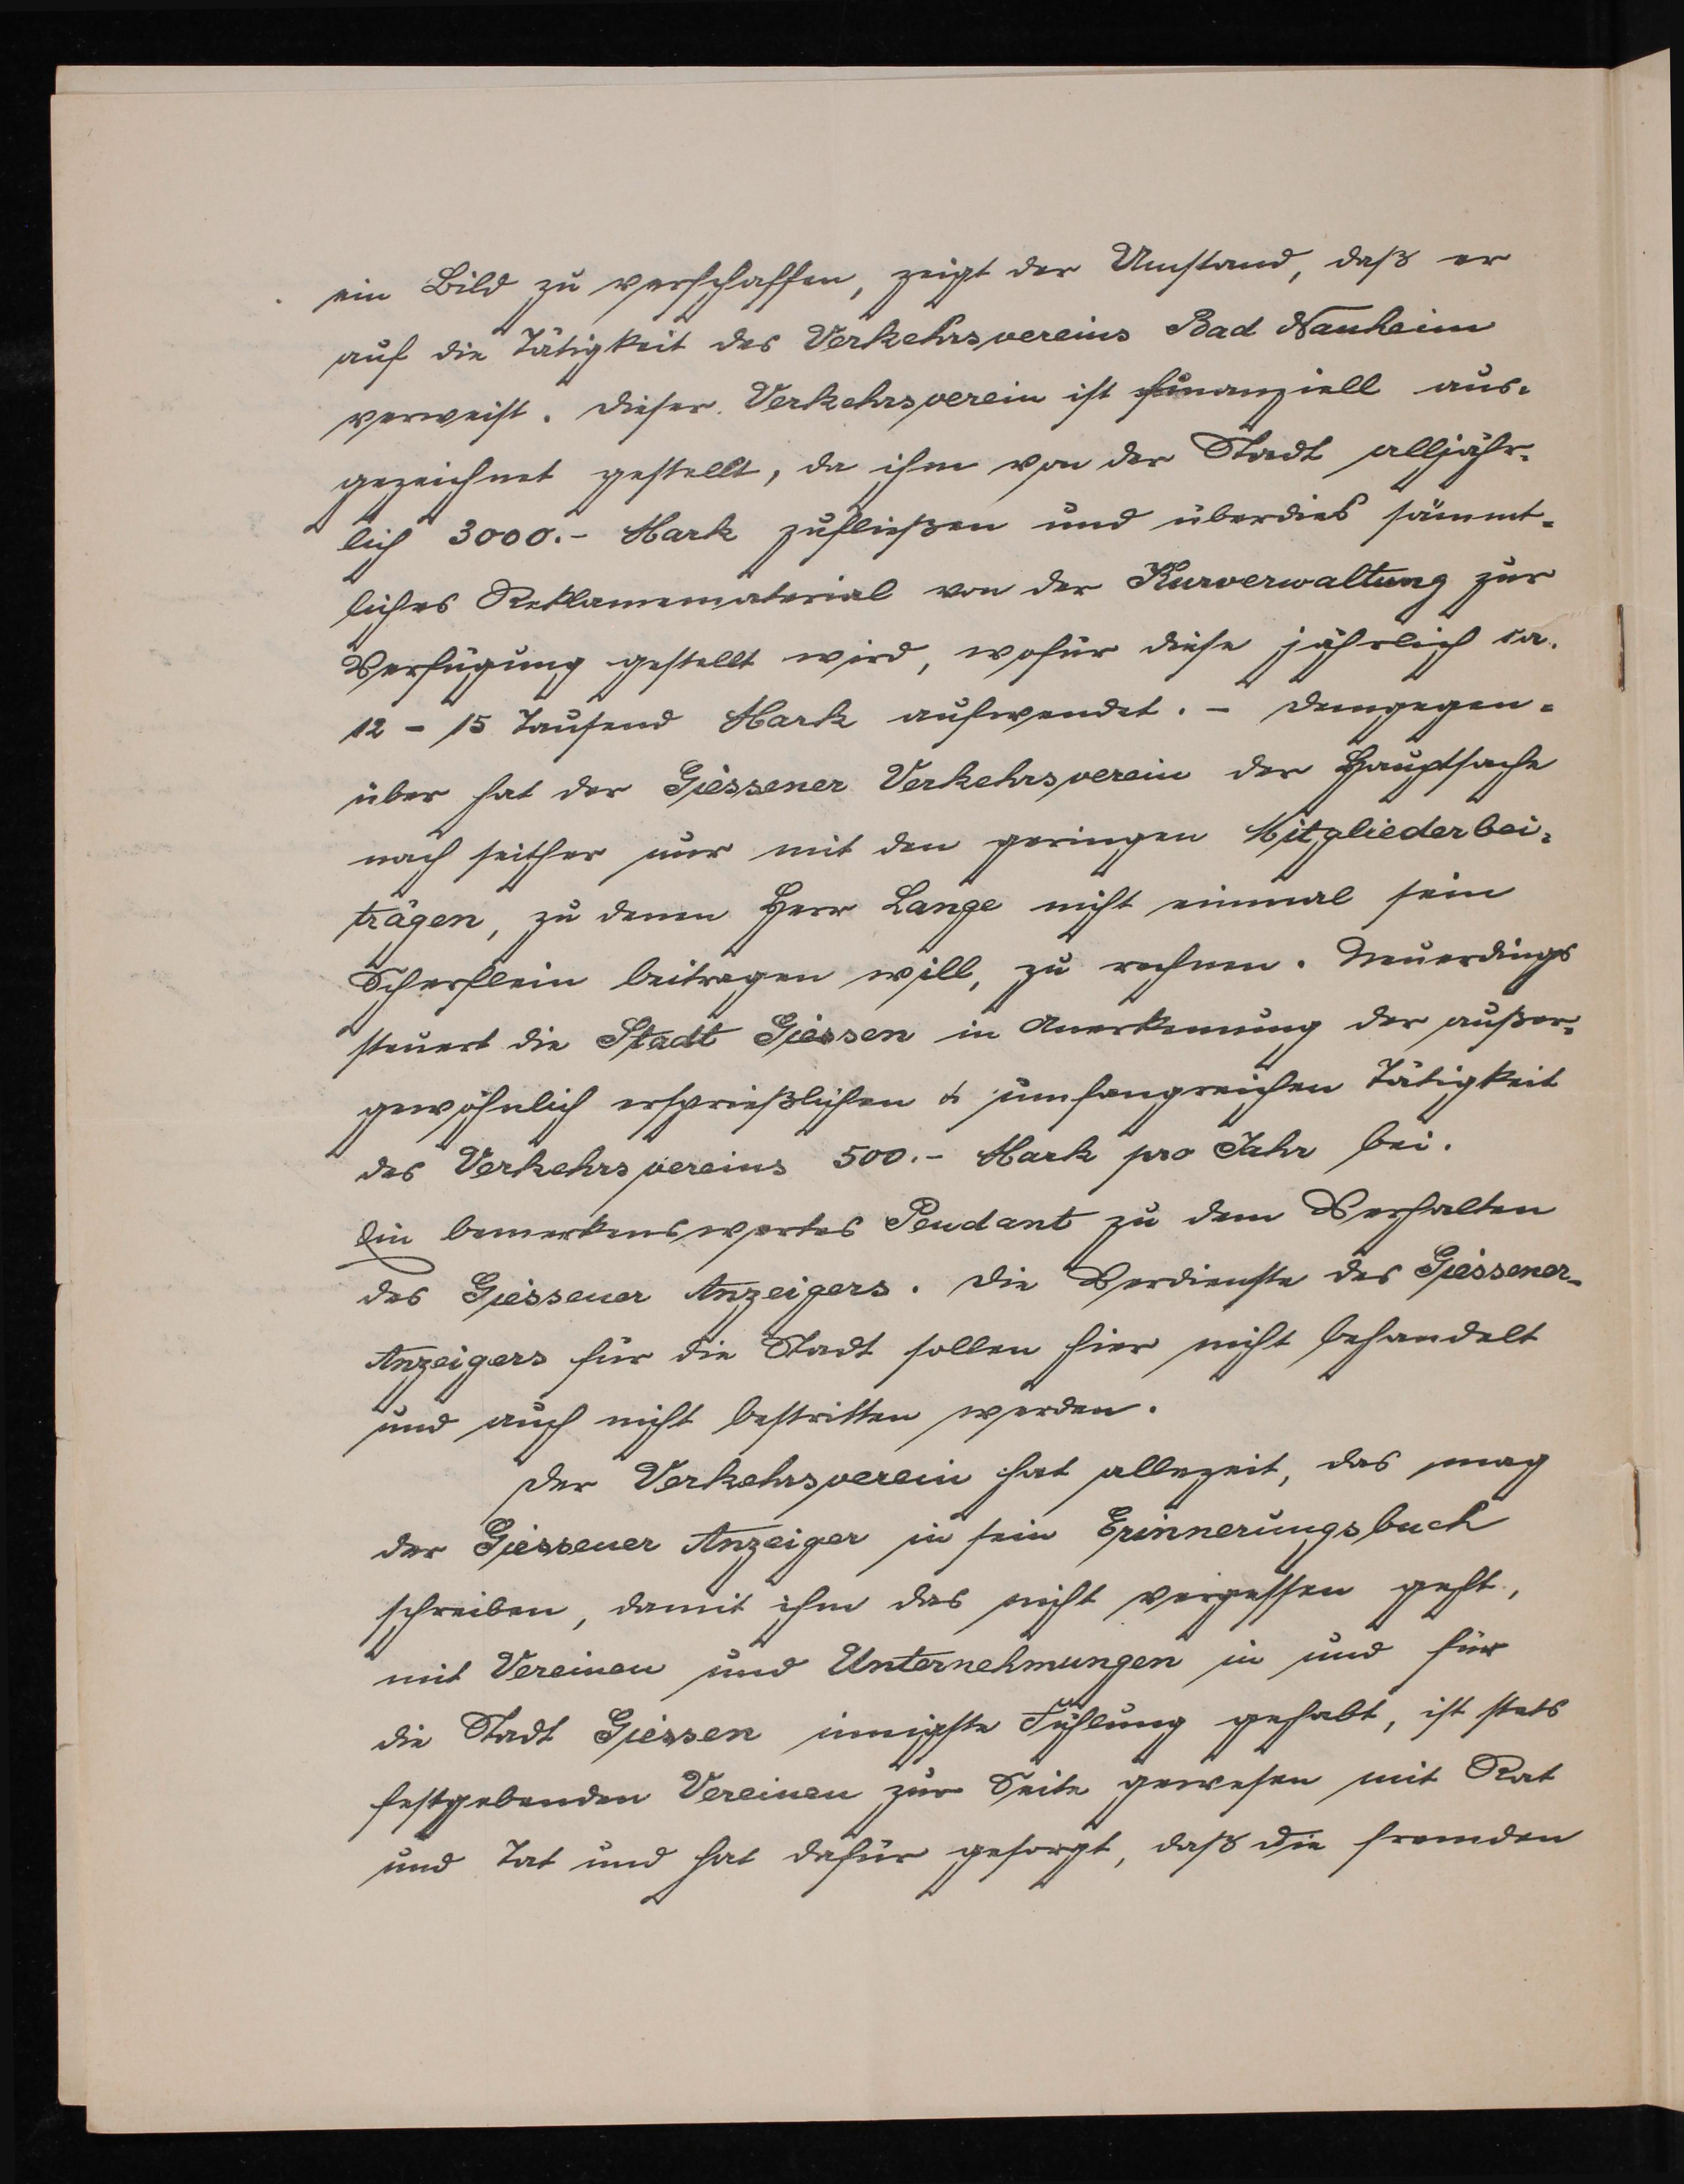 ein Bild zu verschaffen, zeigt der Umstand, daß er
auf die Tätigkeit des Verkehrsvereins Bad Nauheim
verweist. Dieser Verkehrsverein ist finanziell aus-
gezeichnet gestellt, da ihm von der Stadt alljähr-
lich 3000.- Mark zufließen und überdies sämmt-
liches Reklamematerial von der Kurverwaltung zur
Verfügung gestellt wird, wofür diese jährlich ca.
12 - 15 Tausend Mark aufwendet. - Demgegen-
über hat der Giessener Verkehrsverein der Hauptsache
nach seither nur mit den geringen Mitgliederbei-
trägen, zu denen Herr Lange nicht einmal sein
Scherflein beitragen will, zu rechnen. Neuerdings
steuert die Stadt Giessen in Anerkennung der außer-
gewöhnlich ersprießlichen & umfangreichen Tätigkeit
des Verkehrsvereins 500.- Mark pro Jahr bei.
Ein bemerkenswertes Pendant zu dem Verhalten
des Giessener Anzeigers. Die Verdienste des Giessener-
Anzeigers für die Stadt sollen hier nicht behandelt
und auch nicht bestritten werden.
Der Verkehrsverein hat allezeit, das mag
der Giessener Anzeiger in sein Erinnerungsbuch
schreiben, damit ihm das nicht vergessen geht,
mit Vereinen und Unternehmungen in und für
die Stadt Giessen innigste Fühlung gehabt, ist stets
festgebenden Vereinen zur Seite gewesen mit Rat
und Tat und hat dafür gesorgt, daß die fremden